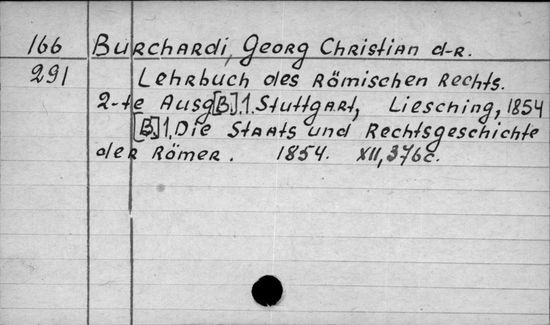 166 Burchardi, Georg Christian d-r.
291 Lehrbuch des Römischen Rechts.
2-te Ausg[B].1.Stuttgart, Liesching, 1854
[B]1. Die Staats und Rechtsgeschichte
der Römer. 1854. XII, 376c.